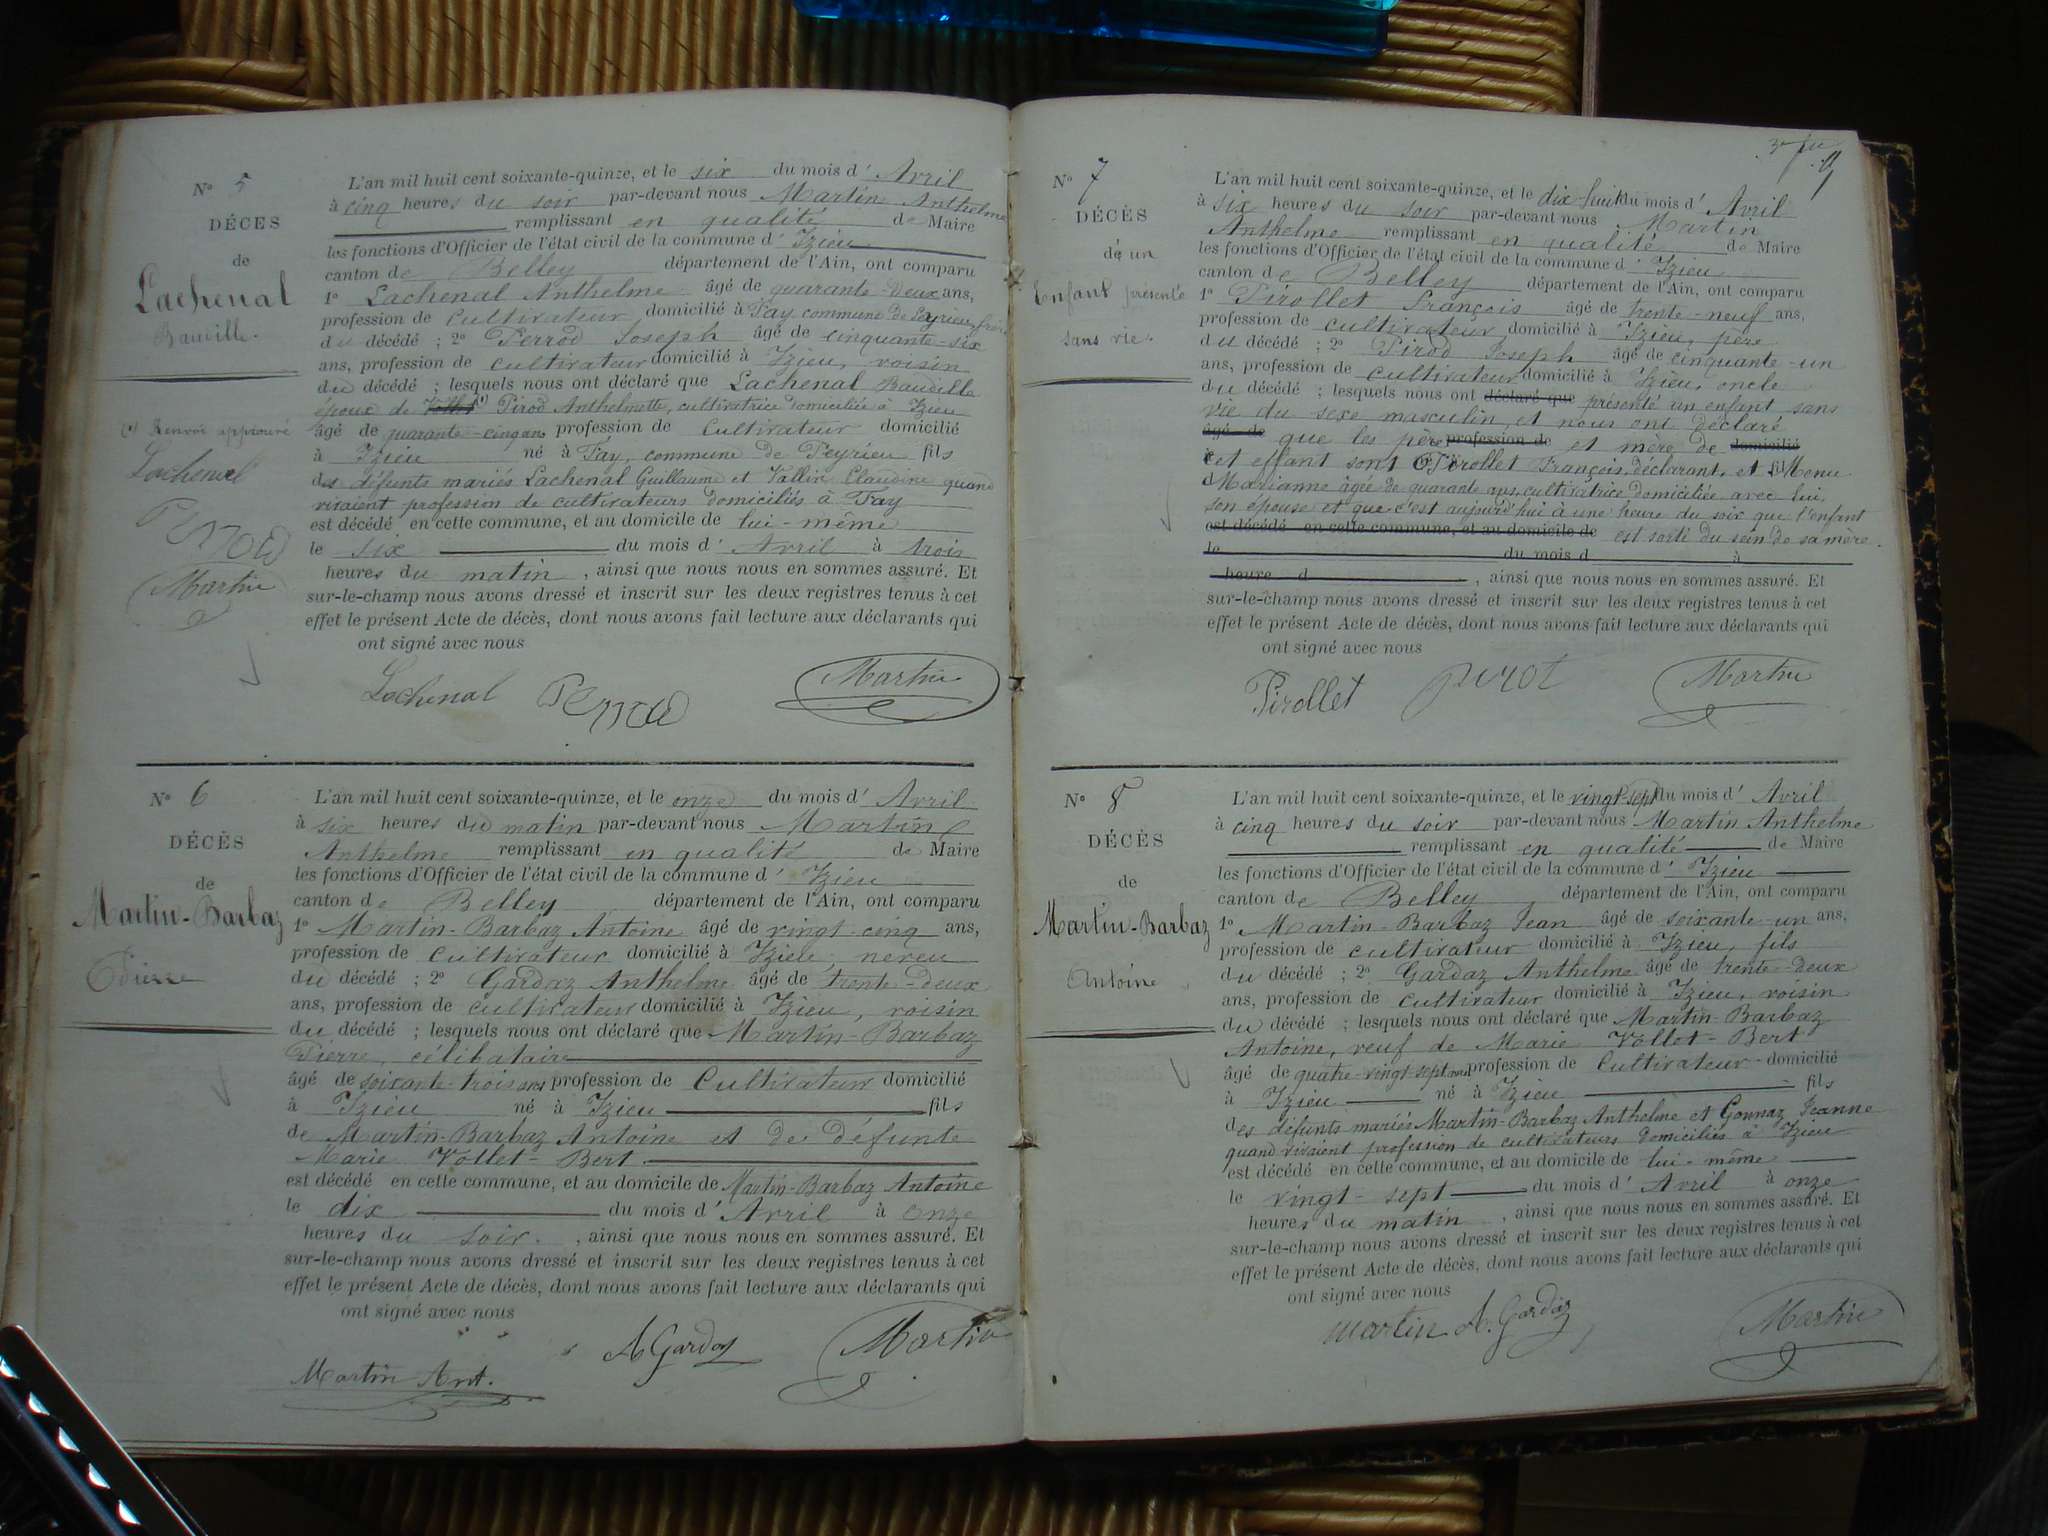 N° 5
DÉCES
de
Lachenal
Baudille.
(1) Renvoi approuvé
Lachenal
Perrod
Martin
L'an mil huit cent soixante-quinze, et le six du mois d' Avril
à cinq heures du soir par-devant nous Martin Anthelme
remplissant en qualité de Maire
les fonctions d'Officier de l'état civil de la commune d' Izieu
canton de Belley département de l'Ain, ont comparu
1° Lachenal Anthelme âgé de quarante-deux ans,
profession de Cultivateur domicilié à Fay commune de Peyrieu, frère
du décédé ; 2° Perrod Joseph âgé de cinquante-six
ans, profession de cultivateur domicilié à Izieu, voisin
du décédé ; lesquels nous ont déclaré que Lachenal Baudille
époux de (1) Pirod Anthelmette, cultivatrice domiciliée à Izieu
âgé de quarante-cinq ans profession de Cultivateur domicilié
à Izieu né à Fay, commune de Peyrieu fils
des défunts mariés Lachenal Guillaume et Vallin Claudine quand
vivaient profession de cultivateurs domiciliés à Fay
est décédé en cette commune, et au domicile de lui-même
le six du mois d' Avril à trois
heures du matin, ainsi que nous nous en sommes assuré. Et
sur-le-champ nous avons dressé et inscrit sur les deux registres tenus à cet
effet le présent Acte de décès, dont nous avons fait lecture aux déclarants qui
ont signé avec nous
Lachenal Perrod Martin
N° 6
DÉCÈS
de
Martin-Barbaz
Pierre
L'an mil huit cent soixante-quinze, et le onze du mois d' Avril
à six heures du matin par-devant nous Martin
Anthelme remplissant en qualité de Maire
les fonctions d'Officier de l'état civil de la commune d' Izieu
canton de Belley département de l'Ain, ont comparu
1° Martin-Barbaz Antoine âgé de vingt-cinq ans,
profession de Cultivateur domicilié à Izieu, neveu
du décédé ; 2° Gardaz Anthelme âgé de trente-deux
ans, profession de cultivateur domicilié à Izieu, voisin
du décédé ; lesquels nous ont déclaré que Martin-Barbaz
Pierre, célibataire
âgé de soixante-trois ans profession de Cultivateur domicilié
à Izieu né à Izieu fils
de Martin-Barbaz Antoine et de défunte
Marie Vollet-Bert
est décédé en cette commune, et au domicile de Martin-Barbaz Antoine
le dix du mois d' Avril à onze
heures du soir. , ainsi que nous nous en sommes assuré. Et
sur-le-champ nous avons dressé et inscrit sur les deux registres tenus à cet
effet le présent Acte de décès, dont nous avons fait lecture aux déclarants qui
ont signé avec nous
Martin Ant. A Gardaz Martin
N° 7
DÉCÈS
de un
Enfant présenté
sans vie.
L'an mil huit cent soixante-quinze, et le dix-huit du mois d' Avril
à six heures du soir par-devant nous Martin
Anthelme remplissant en qualité de Maire
les fonctions d'Officier de l'état civil de la commune d' Izieu
canton de Belley département de l'Ain, ont comparu
1° Pirollet François âgé de trente-neuf ans,
profession de cultivateur domicilié à Izieu, père
du décédé ; 2° Pirod Joseph âgé de cinquante-un
ans, profession de Cultivateur domicilié à Izieu, oncle
du décédé ; lesquels nous ont déclaré que présenté un enfant sans
vie du sexe masculin, et nous ont déclaré
âgé de que les père profession de et mère de domicilié
cet effant sont Pirollet François déclarant, et Menu
Marianne âgée de quarante ans, cultivatrice domiciliée avec lui,
son épouse et que c'est aujourd'hui à une heure du soir que l'enfant
est décédé en cette commune, et au domicile de est sorti du sein de sa mère.
le du mois d à
heure d , ainsi que nous nous en sommes assuré. Et
sur-le-champ nous avons dressé et inscrit sur les deux registres tenus à cet
effet le présent Acte de décès, dont nous avons fait lecture aux déclarants qui
ont signé avec nous
Pirollet pirot Martin
N° 8
DÉCÈS
de
Martin-Barbaz
Antoine
L'an mil huit cent soixante-quinze, et le vingt-sept du mois d' Avril
à cinq heures du soir par-devant nous Martin Anthelme
remplissant en qualité de Maire
les fonctions d'Officier de l'état civil de la commune d' Izieu
canton de Belley département de l'Ain, ont comparu
1° Martin-Barbaz Jean âgé de soixante-un ans,
profession de cultivateur domicilié à Izieu, fils
du décédé ; 2° Gardaz Anthelme âgé de trente-deux
ans, profession de cultivateur domicilié à Izieu, voisin
du décédé ; lesquels nous ont déclaré que Martin-Barbaz
Antoine, veuf de Marie Vollet-Bert
âgé de quatre-vingt-sept ans profession de Cultivateur domicilié
à Izieu né à Izieu fils
des défunts mariés Martin-Barbaz Anthelme et Gonnaz Jeanne
quand vivaient profession de cultivateurs domiciliés à Izieu
est décédé en cette commune, et au domicile de lui-même
le vingt-sept du mois d' Avril à onze
heures du matin , ainsi que nous nous en sommes assuré. Et
sur-le-champ nous avons dressé et inscrit sur les deux registres tenus à cet
effet le présent Acte de décès, dont nous avons fait lecture aux déclarants qui
ont signé avec nous
martin A. Gardaz Martin